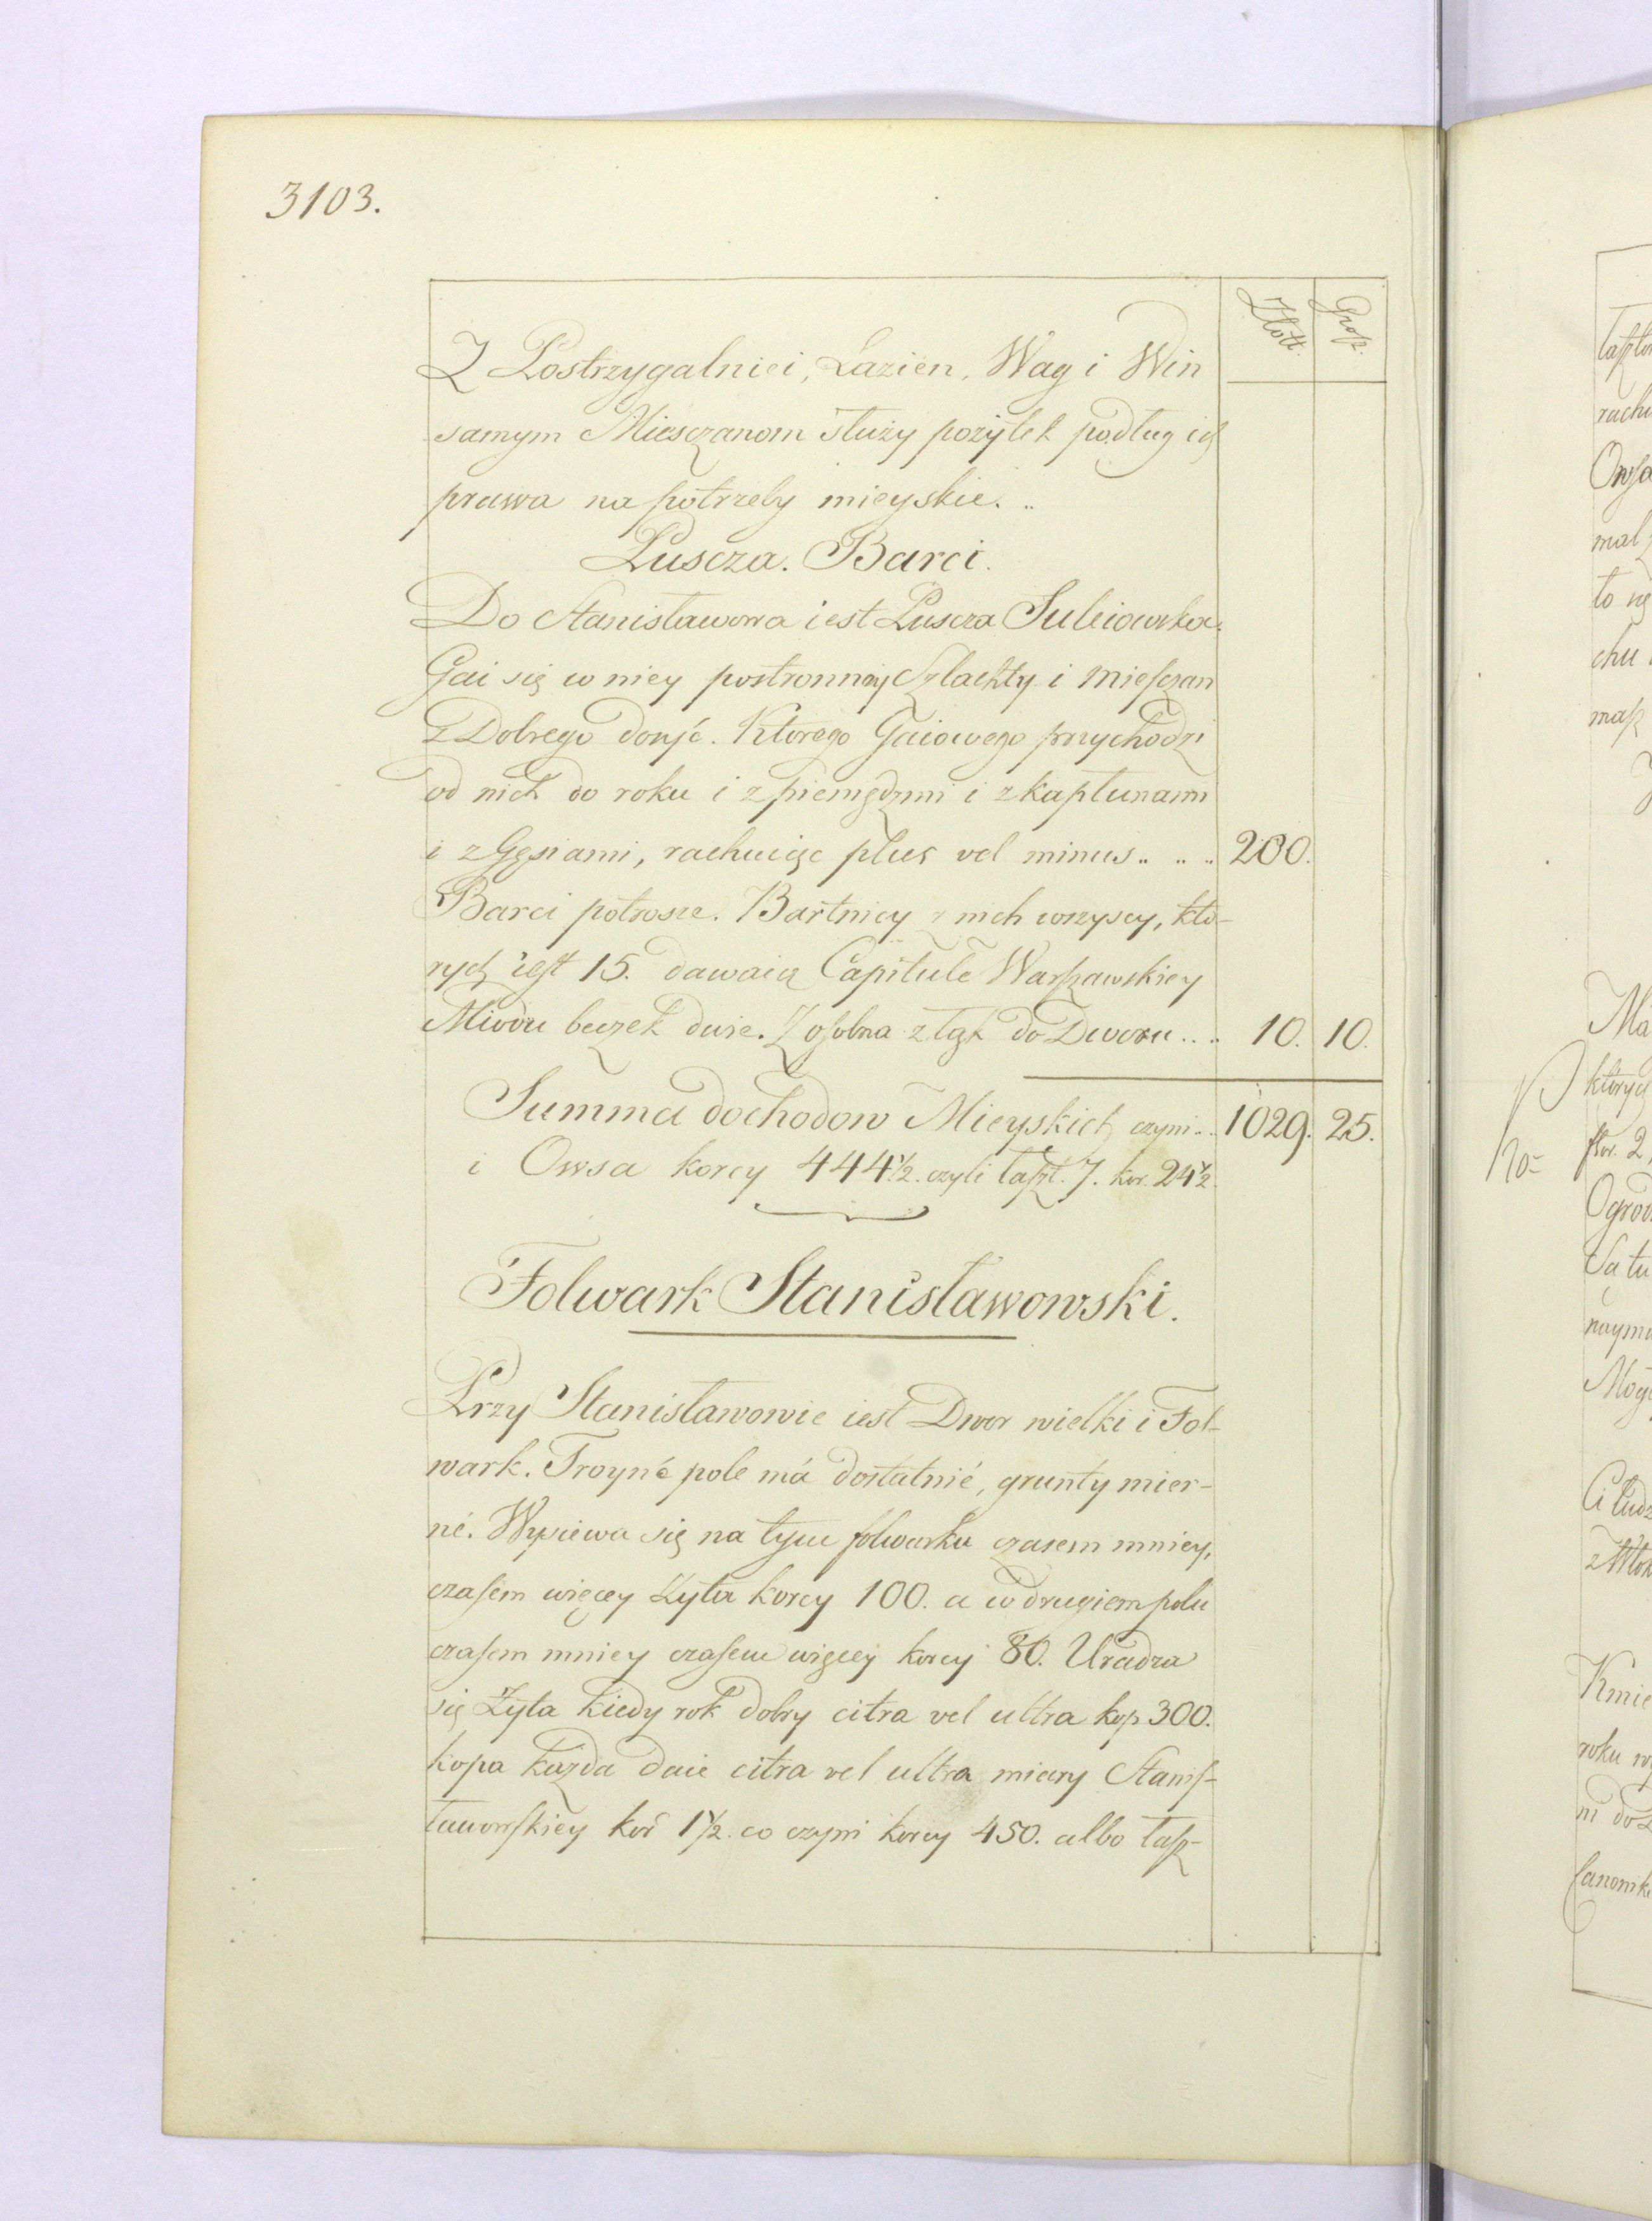 3103.
Złott. Grosz.
Z Postrzygalniei, Lazien, Wag i Win
samym Miesczanom służy pożytek podług ich
prawa na potrzeby mieyskie. ..
Puscza. Barci.
Do Stanisławowa iest Puscza Suleiowska.
Gai się w niey postronney Szlachty i Miesczan
z Dobrego dosyć. Ktorego Gaiowego przychodzi
od nich do roku i z pieniędzmi i z kapłunami
i z Gęsiami, rachuiąc plus vel minus .. .. .. 200.
Barci potrosze. Bartnicy z nich wszyscy, kto-
rych iest 15. dawaią Capitule Warszawskiey
Miodu beczek dwie. Z osobna z łąk do Dworu .. .. 10. 10.
Summa dochodow Mieyskich czyni .. 1029. 25.
i Owsa korcy 444½. czyli łaszt. 7. kor. 24½.
Folwark Stanisławowski.
Przy Stanisławowie iest Dwor wielki i Fol-
wark. Troyné pole má dostatnié, grunty mier-
né. Wysiewa się na tym folwarku czasem mniey,
czasem więcey Żyta korcy 100. a w drugiem polu
czasem mniey czasem więcey korcy 80. Uradza
się Żyta kiedy rok dobry citra vel ultra kop 300.
kopa każda daie citra vel ultra miary Stanis-
ławowskiey kor 1½. co czyni korcy 450. albo łasz-